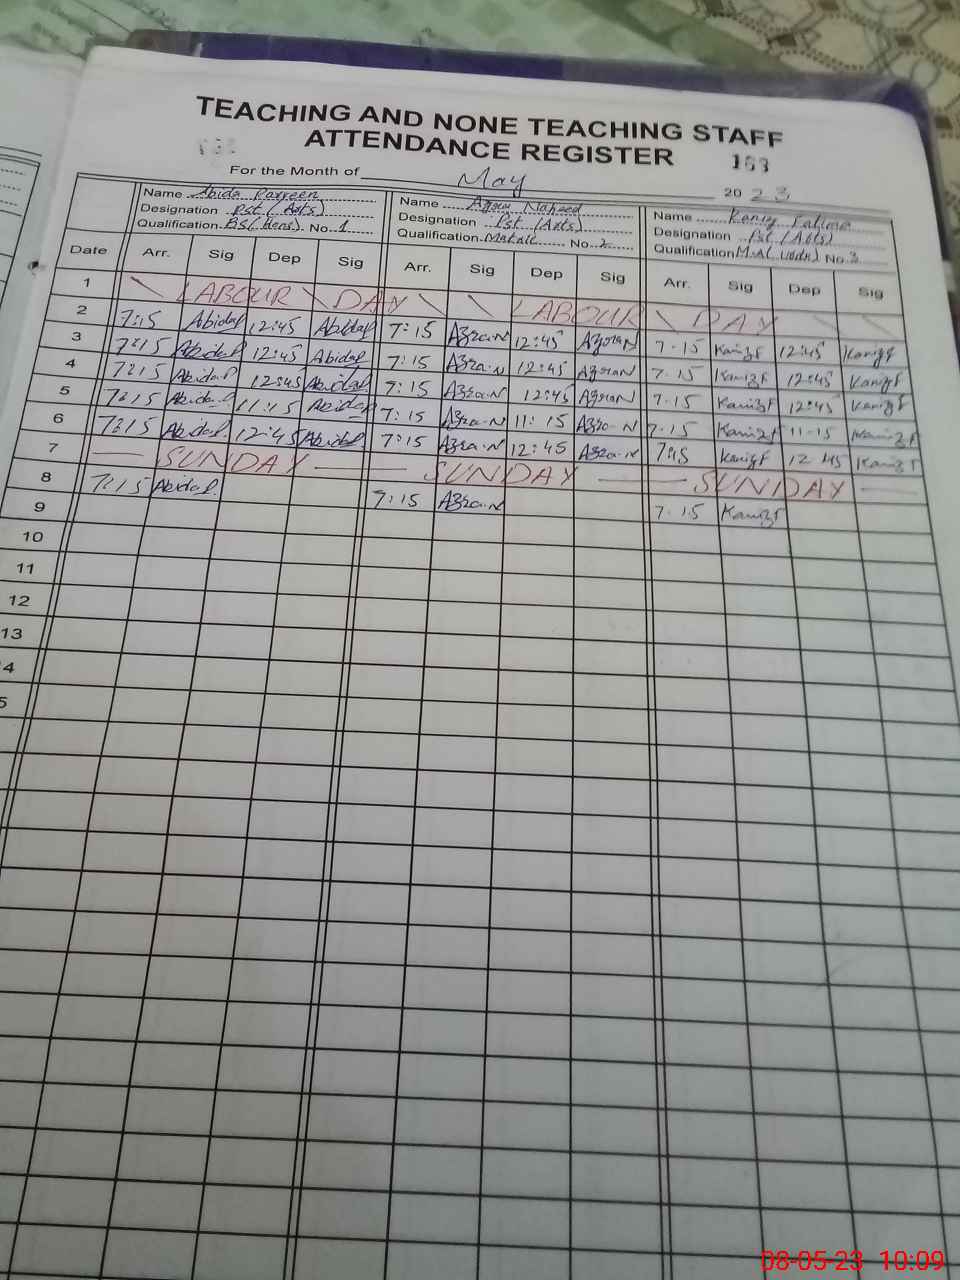 TEACHING AND NONE TEACHING STAFF
ATTENDANCE REGISTER 163
For the Month of May 2023
Name Abida Parveen Name Azra Naheed Name Kaniz Fatima
Designation Pst (Arts) Designation Pst (Arts) Designation Pst (Arts)
Qualification BS(Hons). No. 1 Qualification Matric No. 2 Qualification M.A( Urdu) No. 3
Date Arr. Sig Dep Sig Arr. Sig Dep Sig Arr. Sig Dep Sig
1 LABOUR DAY LABOUR DAY
2 7:15 AbidaP 12:45 AbidaP 7:15 Azra.N 12:45 AzraN 7.15 KanizF 12:45 KanizF
3 7:15 AbidaP 12:45 AbidaP 7:15 Azra.N 12:45 AzraN 7.15 KanizF 12:45 KanizF
4 7:15 Abida.P 12:45 AbidaP 7:15 Azra.N 12:45 AzraN 7.15 KanizF 12:45 KanizF
5 7:15 Abida.P 11:15 AbidaP 7:15 Azra.N 11:15 Azra.N 7.15 KanizF 11-15 KanizF
6 7:15 AbidaP. 12:45 AbidaP 7:15 Azra.N 12:45 Azra.N 7:15 KanizF 12:45 KanizF
7 SUNDAY SUNDAY SUNDAY
8 7:15 AbidaP. 7:15 Azra.N 7.15 KanizF
9
10
11
12
13
4
5
08-05-23 10:09